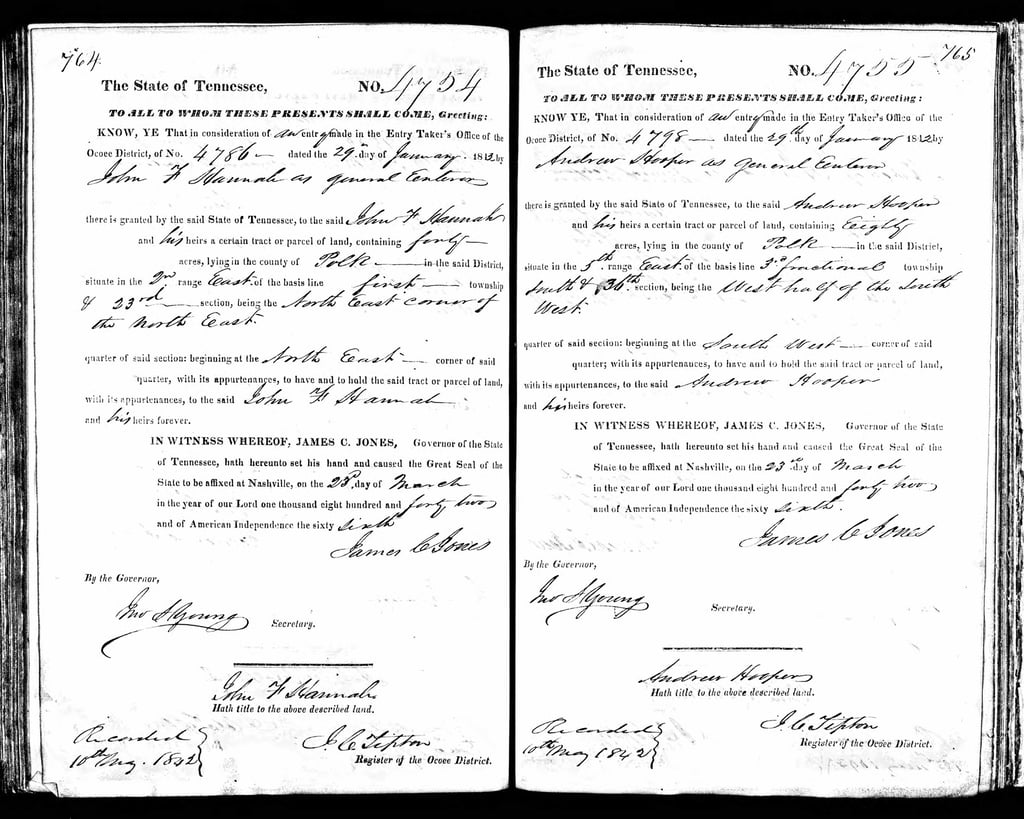 764
The State of Tennessee, NO. 4754
TO ALL TO WHOM THESE PRESENTS SHALL COME, Greeting:
KNOW, YE That in consideration of an entry made in the Entry Taker's Office of the
Ocoee District, of No. 4786 — dated the 29th day of January 1842 by
John F Hannah as general Enterer
there is granted by the said State of Tennessee, to the said John F Hannah
and his heirs a certain tract or parcel of land, containing forty —
acres, lying in the county of Polk — in the said District,
situate in the 2nd range East of the basis line first — township
& 23rd — section, being the North East corner of
the North East.
quarter of said section: beginning at the North East — corner of said
quarter, with its appurtenances, to have and to hold the said tract or parcel of land,
with its appurtenances, to the said John F Hannah
and his heirs forever.
IN WITNESS WHEREOF, JAMES C. JONES, Governor of the State
of Tennessee, hath hereunto set his hand and caused the Great Seal of the
State to be affixed at Nashville, on the 23d day of March
in the year of our Lord one thousand eight hundred and forty two
and of American Independence the sixty sixth
James C Jones
By the Governor,
Jno S Young Secretary.
John F Hannah
Hath title to the above described land.
Recorded
10th May. 1842
J. C. Tipton
Register of the Ocoee District.
765
The State of Tennessee, NO. 4755
TO ALL TO WHOM THESE PRESENTS SHALL COME, Greeting:
KNOW YE, That in consideration of an entry made in the Entry Taker's Office of the
Ocoee District, of No. 4798 — dated the 29th day of January 1842 by
Andrew Hooper as general Enterer
there is granted by the said State of Tennessee, to the said Andrew Hooper
and his heirs a certain tract or parcel of land, containing Eighty
acres, lying in the county of Polk — in the said District,
situate in the 5th. range East of the basis line 3rd fractional township
South & 36th section, being the West half of the South
West.
quarter of said section: beginning at the South West — corner of said
quarter; with its appurtenances, to have and to hold the said tract or parcel of land,
with its appurtenances, to the said Andrew Hooper
and his heirs forever.
IN WITNESS WHEREOF, JAMES C. JONES, Governor of the State
of Tennessee, hath hereunto set his hand and caused the Great Seal of the
State to be affixed at Nashville, on the 23rd day of March
in the year of our Lord one thousand eight hundred and forty two
and of American Independence the sixty sixth.
James C Jones
By the Governor,
Jno S Young Secretary.
Andrew Hooper
Hath title to the above described land.
Recorded
10th May 1842
J. C. Tipton
Register of the Ocoee District.